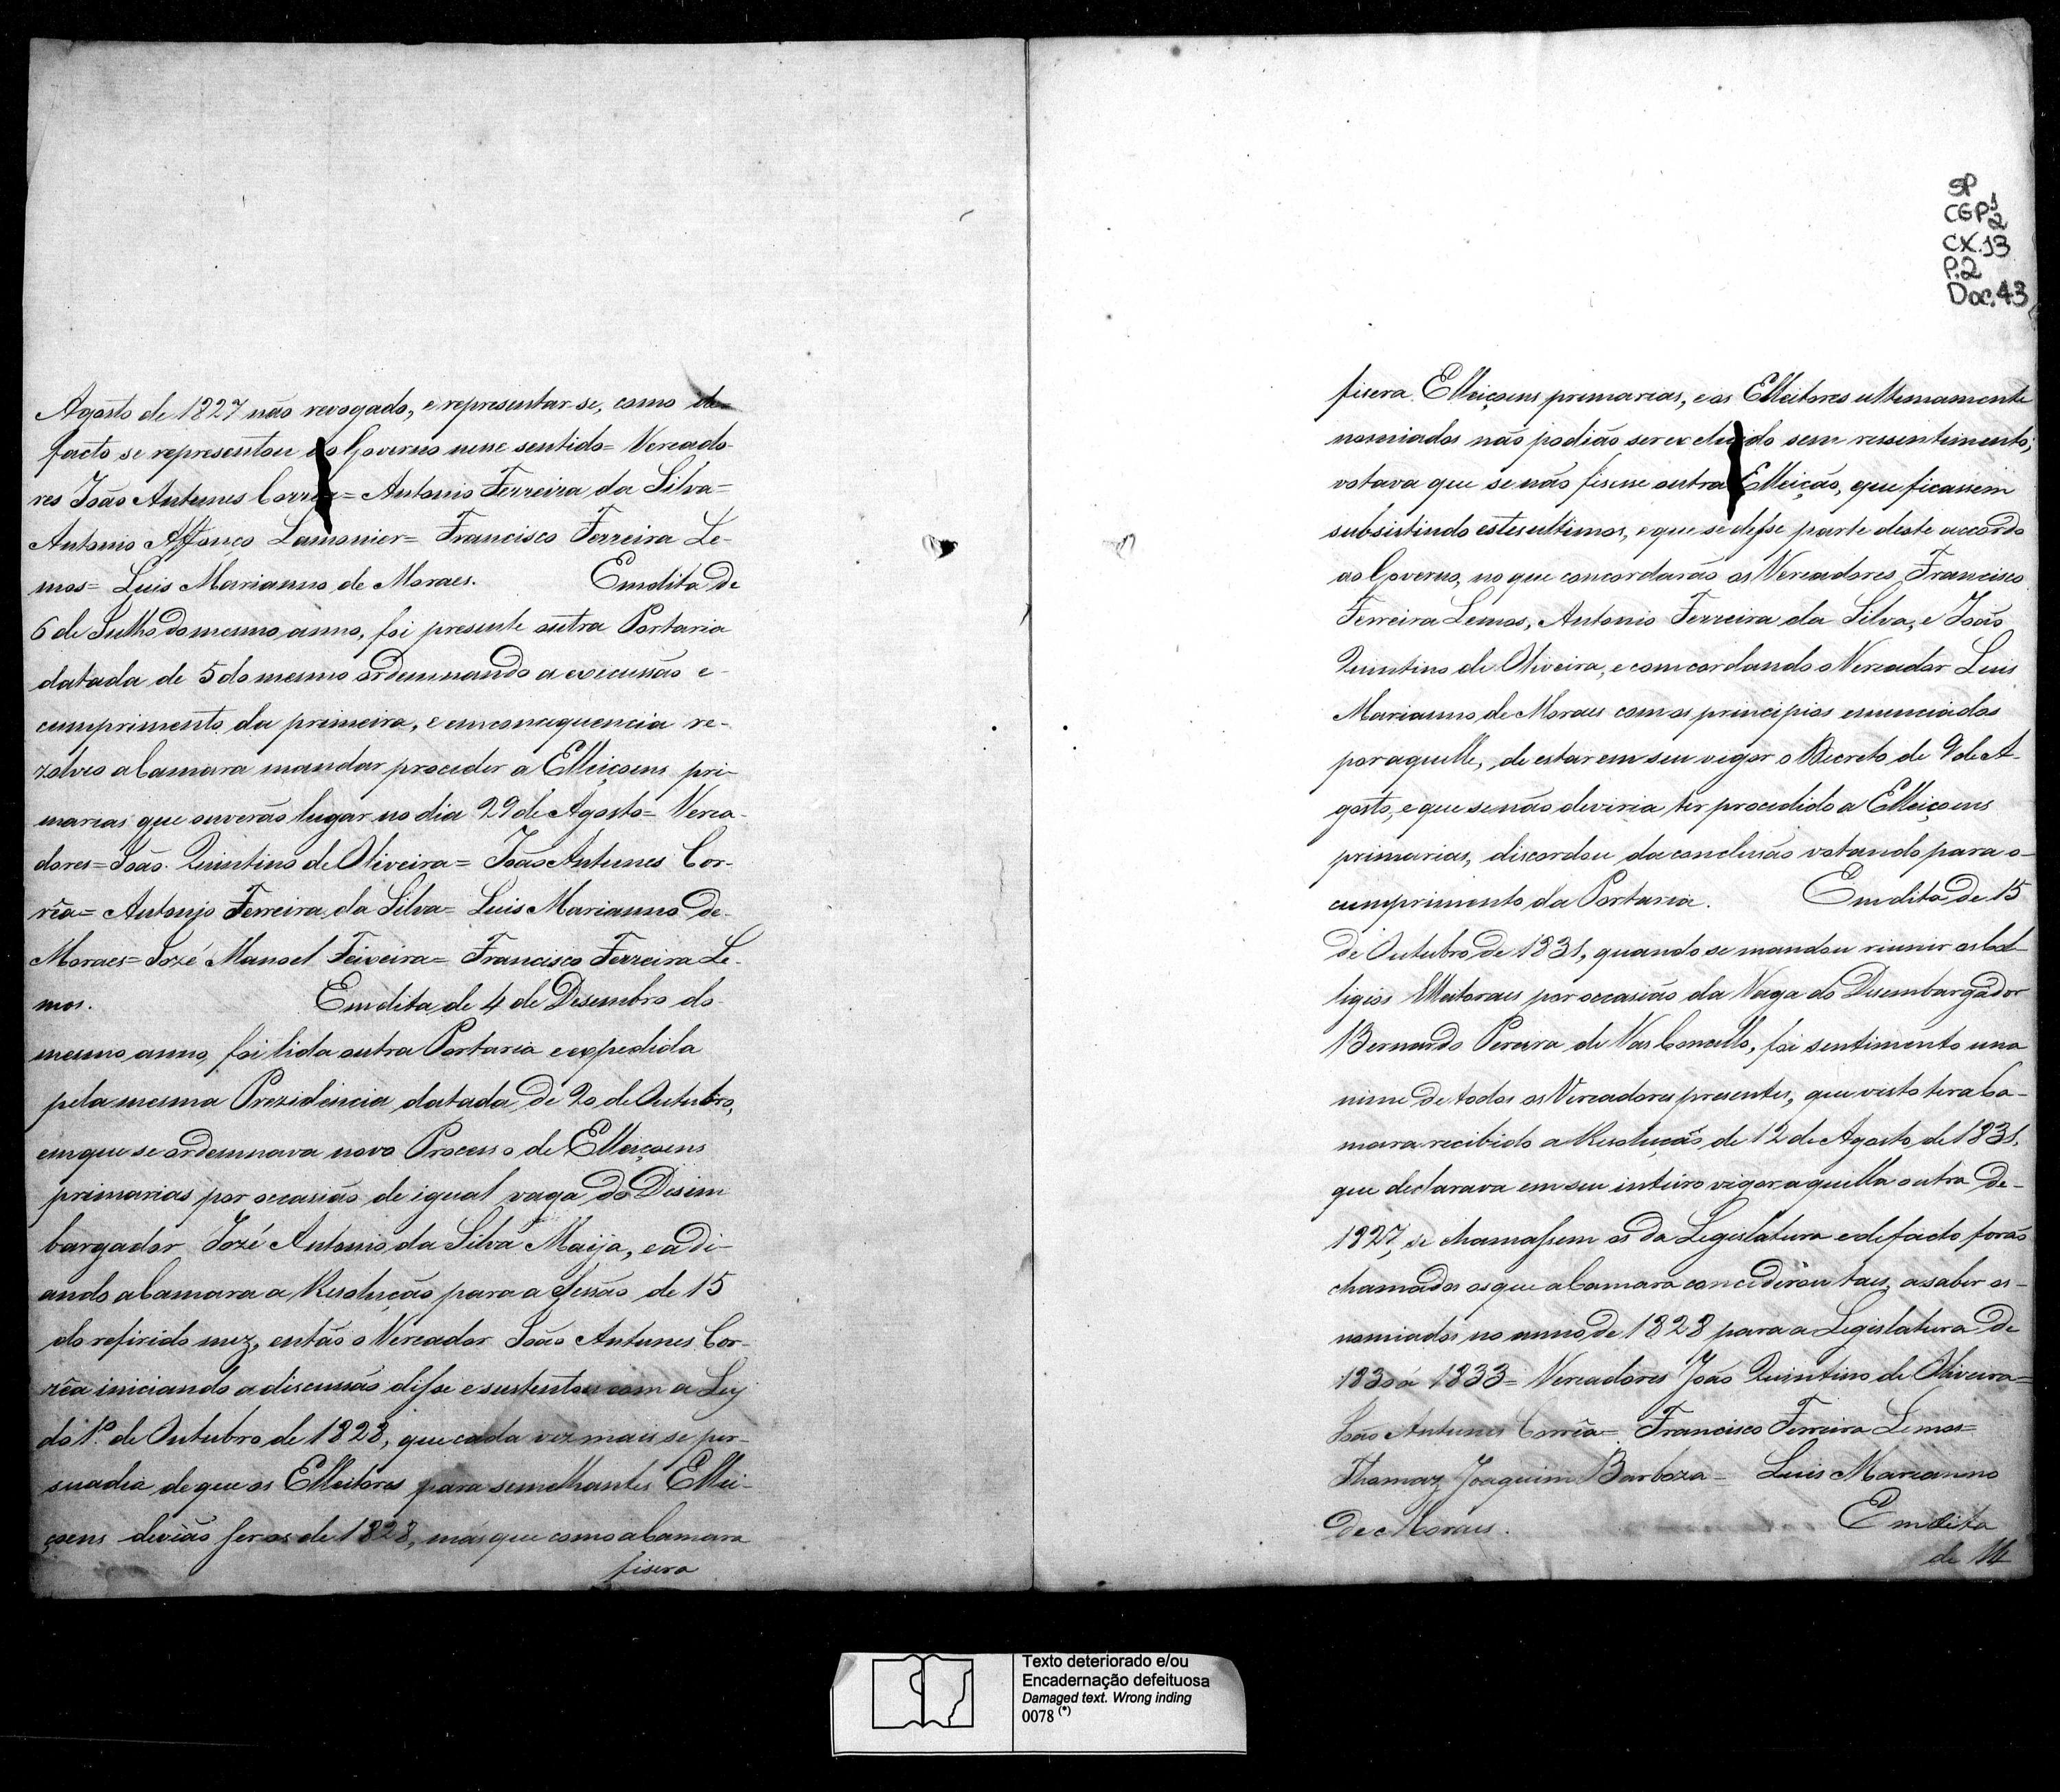 Agosto de 1827 não revogado, e representar-se, como de
facto se representou ao Governo nesse sentido= Vereado-
res João Antunes Corrêa= Antonio Ferreira da Silva=
Antonio Affonço Lamonier= Francisco Ferreira Le-
mos= Luis Marianno de Moraes. Em dita de
6 de Julho do mesmo anno, foi presente outra Portaria
datada de 5 do mesmo ordennando a execussão e-
cumprimento da primeira, e em consequencia re-
zolveo a Camara mandar proceder a Elleiçoens pri-
marias que ouverão lugar no dia 29 de Agosto= Verea-
dores= João Quintino de Oliveira= João Antunes Cor-
rêa= Antonio Ferreira da Silva= Luis Marianno de-
Moraes= Jozé Manoel Teixeira= Francisco Ferreira Le-
mos. Em dita de 4 de Desembro do-
mesmo anno, foi lida outra Portaria e expedida
pela mesma Prezidencia datada de 20 de Outubro,
em que se ordennava novo Processo de Elleiçoens
primarias por occasião de igual vaga do Desim
bargador Jozé Antonio da Silva Maija, e adi-
ando a Camara a Resolução para a Sessão de 15
do referido mez, então o Vereador João Antunes Cor-
rêa iniciando a discussão disse e sustentou com a Ley
do 1º. de Outubro de 1828, que cada vez mais se per-
suadia de que os Elleitores para semelhantes Ellei-
çoens devião ser os de 1828, más que como a Camara
fisera
SP
CGP 1
2
CX.13
P.2
Doc.43
fisera Elleiçoens primarias, e os Elleitores ultemamente
nomiados não podião ser excluido sem ressentimento,
votava que se não fisesse outra Elleição, que ficassem
subsistindo estes ultimos, e que se desse parte deste accordo
ao Governo, no que concordarão os Vereadores Francisco
Ferreira Lemos, Antonio Ferreira da Silva, e João
Quintino de Oliveira, e comcordando o Vereador Luis
Marianno de Moraes com os principios enunciados
por aquelle, de estar em seu vigor o Decreto de 9 de A-
gosto, e que se não deviria ter procedido a Elleiçoens
primarias, discordou da conclusão votando para o-
cumprimento da Portaria. Em dita de 15
de Outubro de 1831, quando se mandou riunir os Col-
ligios Elleitoraes por occasião da Vaga do Desembargador
Bernardo Pereira de Vas Concellos, foi sentimento una
nime de todos os Vereadores presentes, que visto ter a Ca-
mara recibido a Resolução de 12 de Agosto de 1831,
que declarava em seu inteiro vigor aquella outra de-
1827, se chamassem os da Legislatura e de facto forão
chamados os que a Camara conciderou taes, a saber os-
nomiados no anno de 1828 para a Legislatura de
1830 á 1833= Vereadores João Quintino de Oliveira=
João Antunes Corrêa= Francisco Ferreira Lemos=
Thomaz Joaquim Barboza= Luis Marianno
de Moraes. Em dita
de 14
Texto deteriorado e/ou
Encadernação defeituosa
Damaged text. Wrong inding
0078 (*)